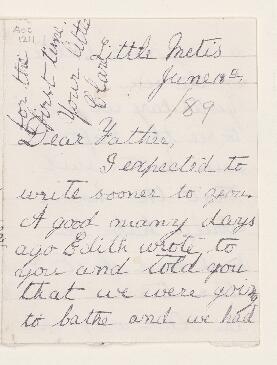 Acc
1211
for the
first time.
Your little
Clare
Little Metis
June 18th.
/89
Dear Father,
I expected to
write sooner to you.
A good many days
ago Edith wrote to
you and told you
that we were going
to bathe and we had